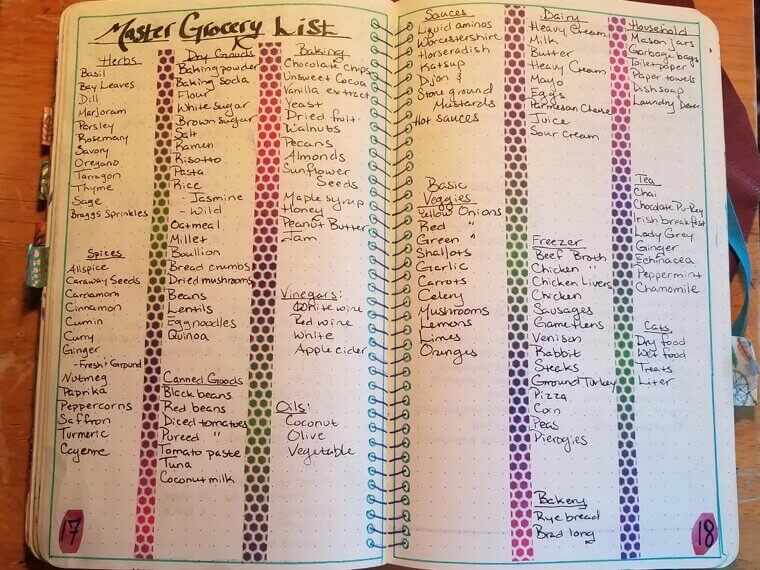 Master Grocery List
Herbs
Basil
Bay Leaves
Dill
Marjoram
Parsley
Rosemary
Savory
Oregano
Tarragon
Thyme
Sage
Braggs Sprinkles
Spices
Allspice
Caraway Seeds
Cardamom
Cinnamon
Cumin
Curry
Ginger
- Fresh & Ground
Nutmeg
Paprika
Peppercorns
Saffron
Turmeric
Cayenne
17
Dry Goods
Baking powder
Baking soda
Flour
White sugar
Brown sugar
Salt
Ramen
Risotto
Pasta
Rice
- Jasmine
- Wild
Oatmeal
Millet
Boullion
Bread crumbs
Dried mushrooms
Beans
Lentils
Egg noodles
Quinoa
Canned Goods
Black beans
Red beans
Diced tomatoes
Pureed "
Tomato paste
Tuna
Coconut milk
Baking
Chocolate Chips
Unsweet Cocoa
Vanilla extract
Yeast
Dried fruit
Walnuts
Pecans
Almonds
Sunflower
Seeds
Maple syrup
Honey
Peanut Butter
Jam
Vinegars:
White wine
Red wine
White
Apple cider
Oils:
Coconut
Olive
Vegetable
Sauces
Liquid aminos
Worcestershire
Horseradish
Katsup
Dijon &
Stone ground
Mustards
Hot sauces
Basic
Veggies
Yellow Onions
Red "
Green "
Shallots
Garlic
Carrots
Celery
Mushrooms
Lemons
Limes
Oranges
Dairy
Heavy Cream
Milk
Butter
Heavy Cream
Mayo
Eggs
Parmesan Cheese
Juice
Sour Cream
Freezer
Beef Broth
Chicken "
Chicken Livers
Chicken
Sausages
Game Hens
Venison
Rabbit
Steaks
Ground Turkey
Pizza
Corn
Peas
Pierogies
Bakery
Rye bread
Brad long
Household
Mason jars
Garbage bags
Toilet paper
Paper towels
Dish soap
Laundry
Tea
Chai
Chocolate
Irish breakfast
Lady Grey
Ginger
Echinacea
Peppermint
Chamomile
Cats
Dry food
Wet food
Treats
Liter
18